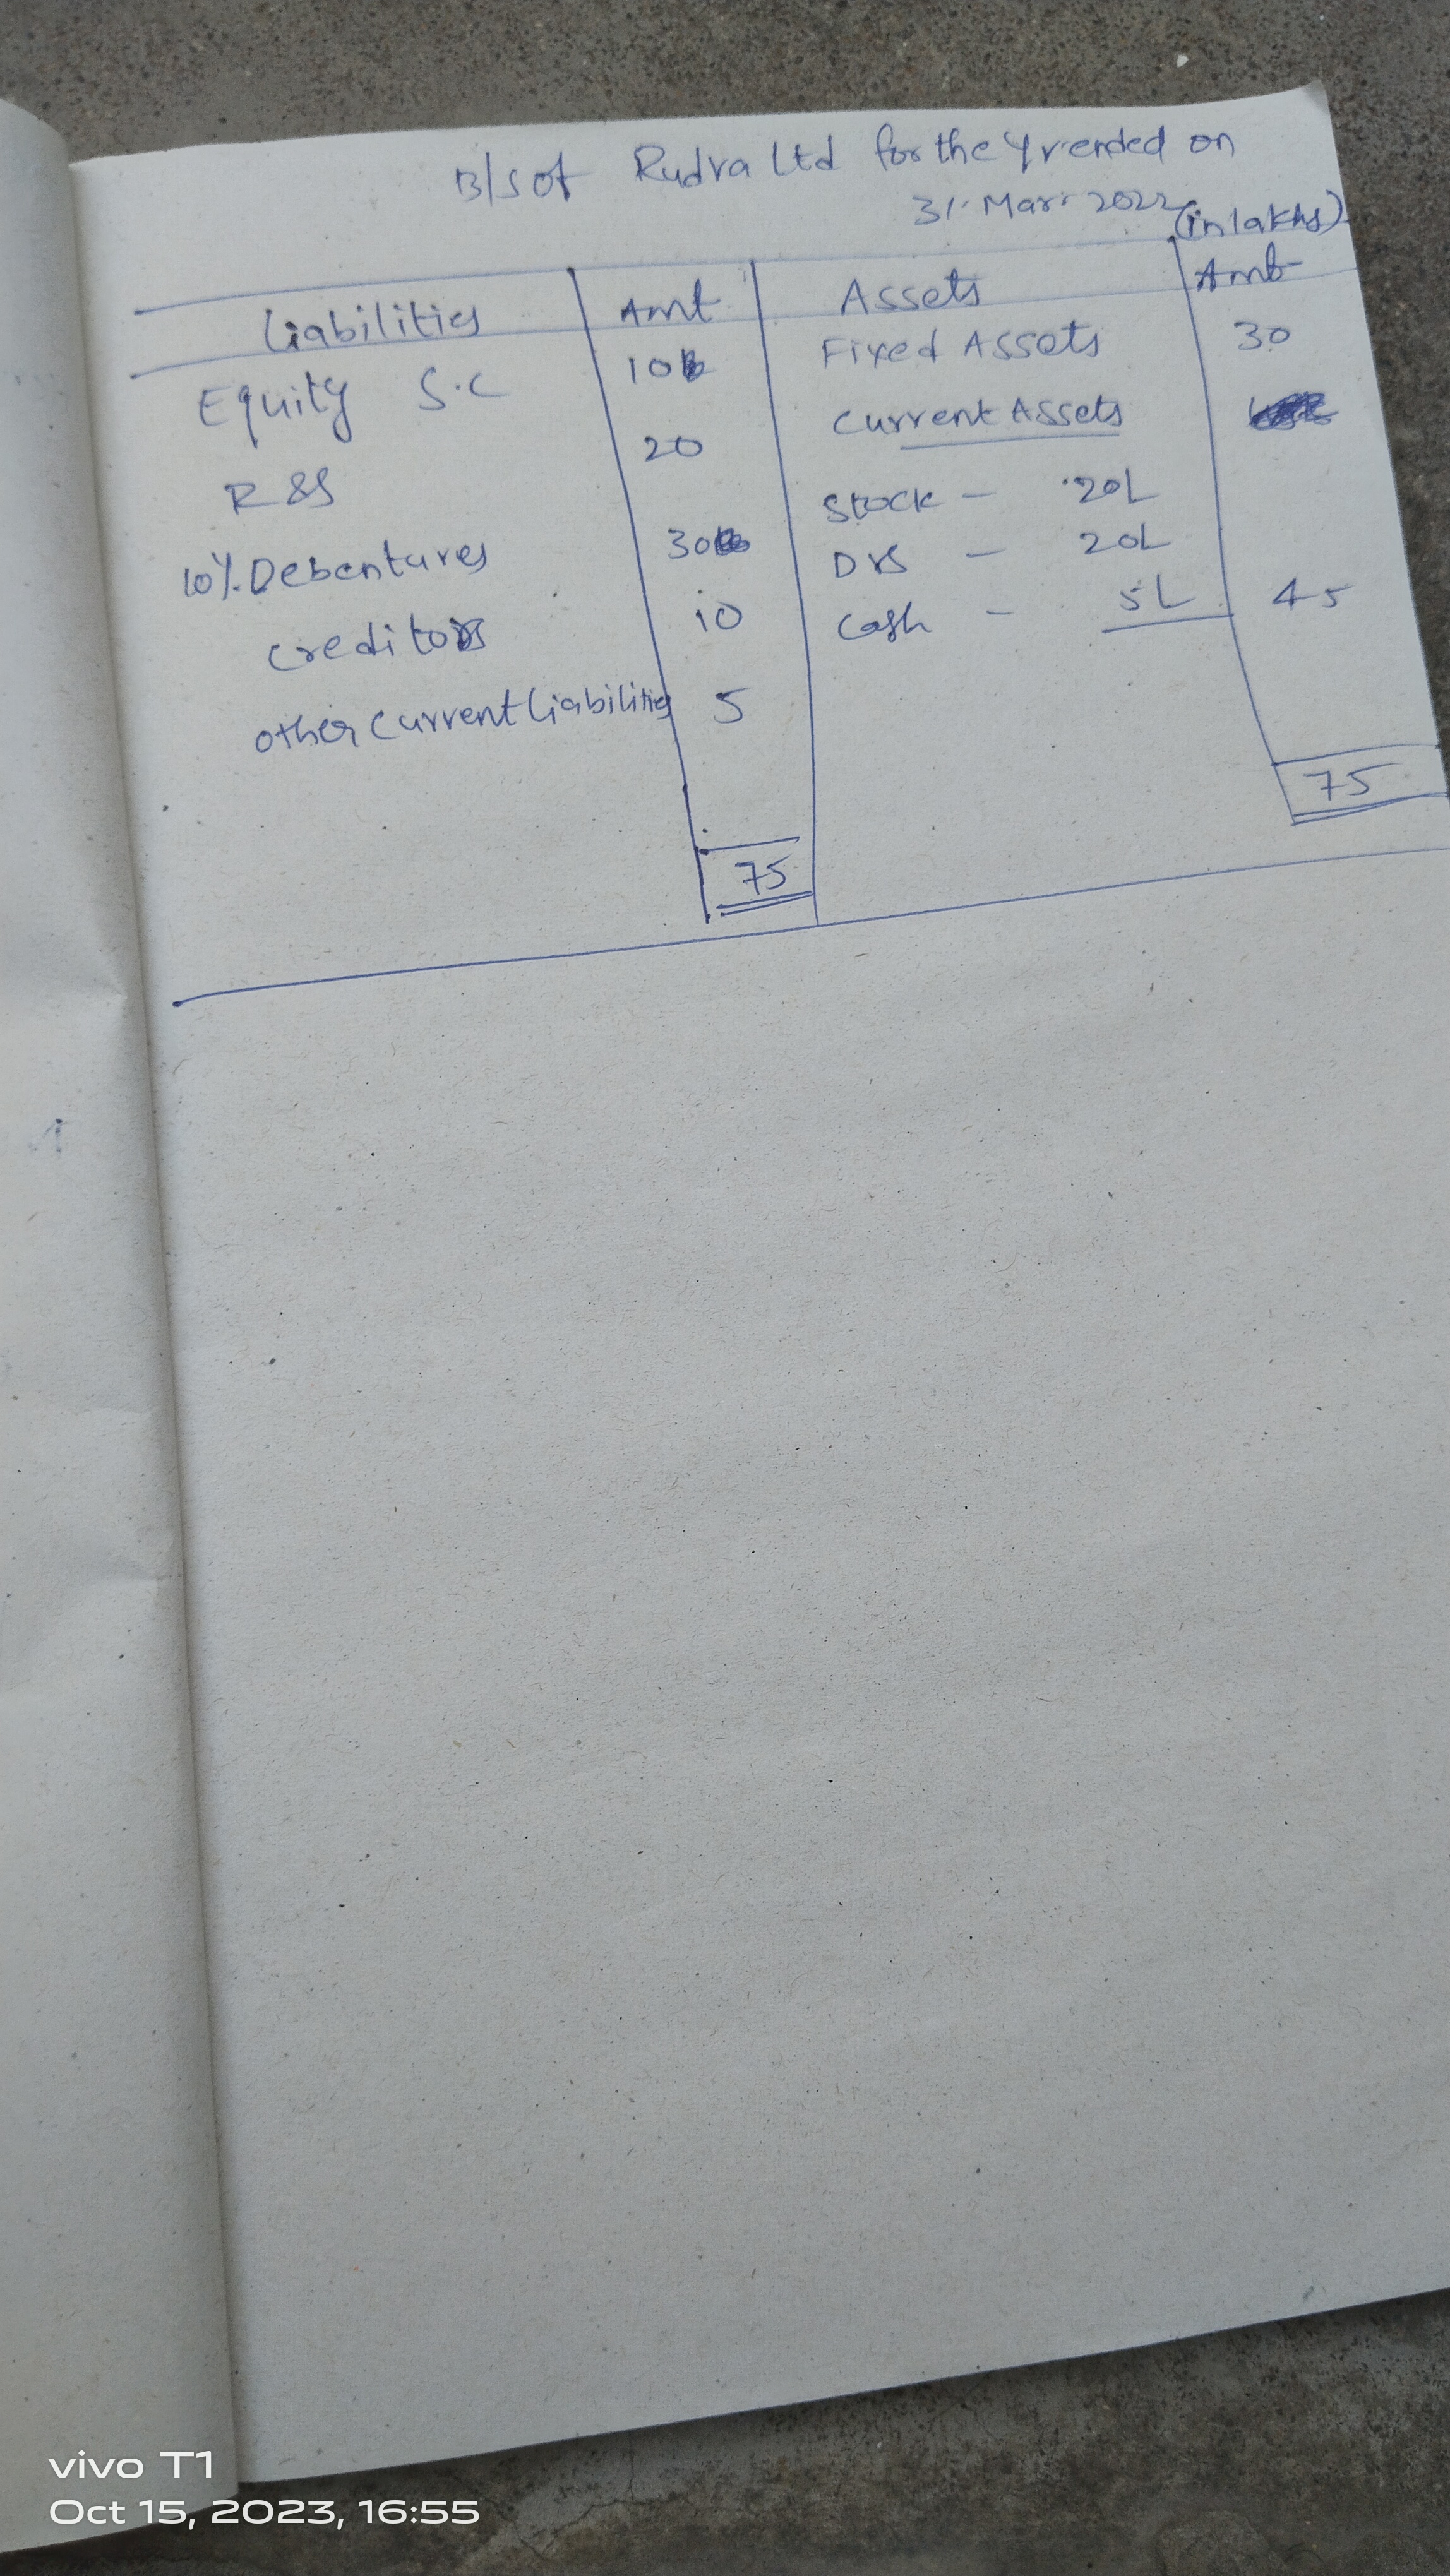 B/S of Rudra Ltd for the Yr ended on
31 Mar 2022 (in lakhs)
Liabilities Amt Assets Amt
Equity S.C 10 Fixed Assets 30
R&S 20 Current Assets
10% Debentures 30 Stock - 20L
Creditors 10 Drs - 20L
other current liabilities 5 Cash - 5L 45
75 75
vivo T1
Oct 15, 2023, 16:55